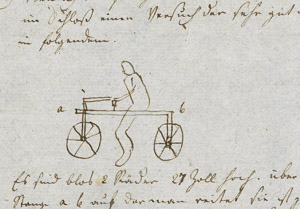 im Schloß einen Versuch der sehr gut
in folgendem.
a b
Es sind blos 2 Räder 27 Zoll hoch. über
Stange a b auf der man reitet sie ist